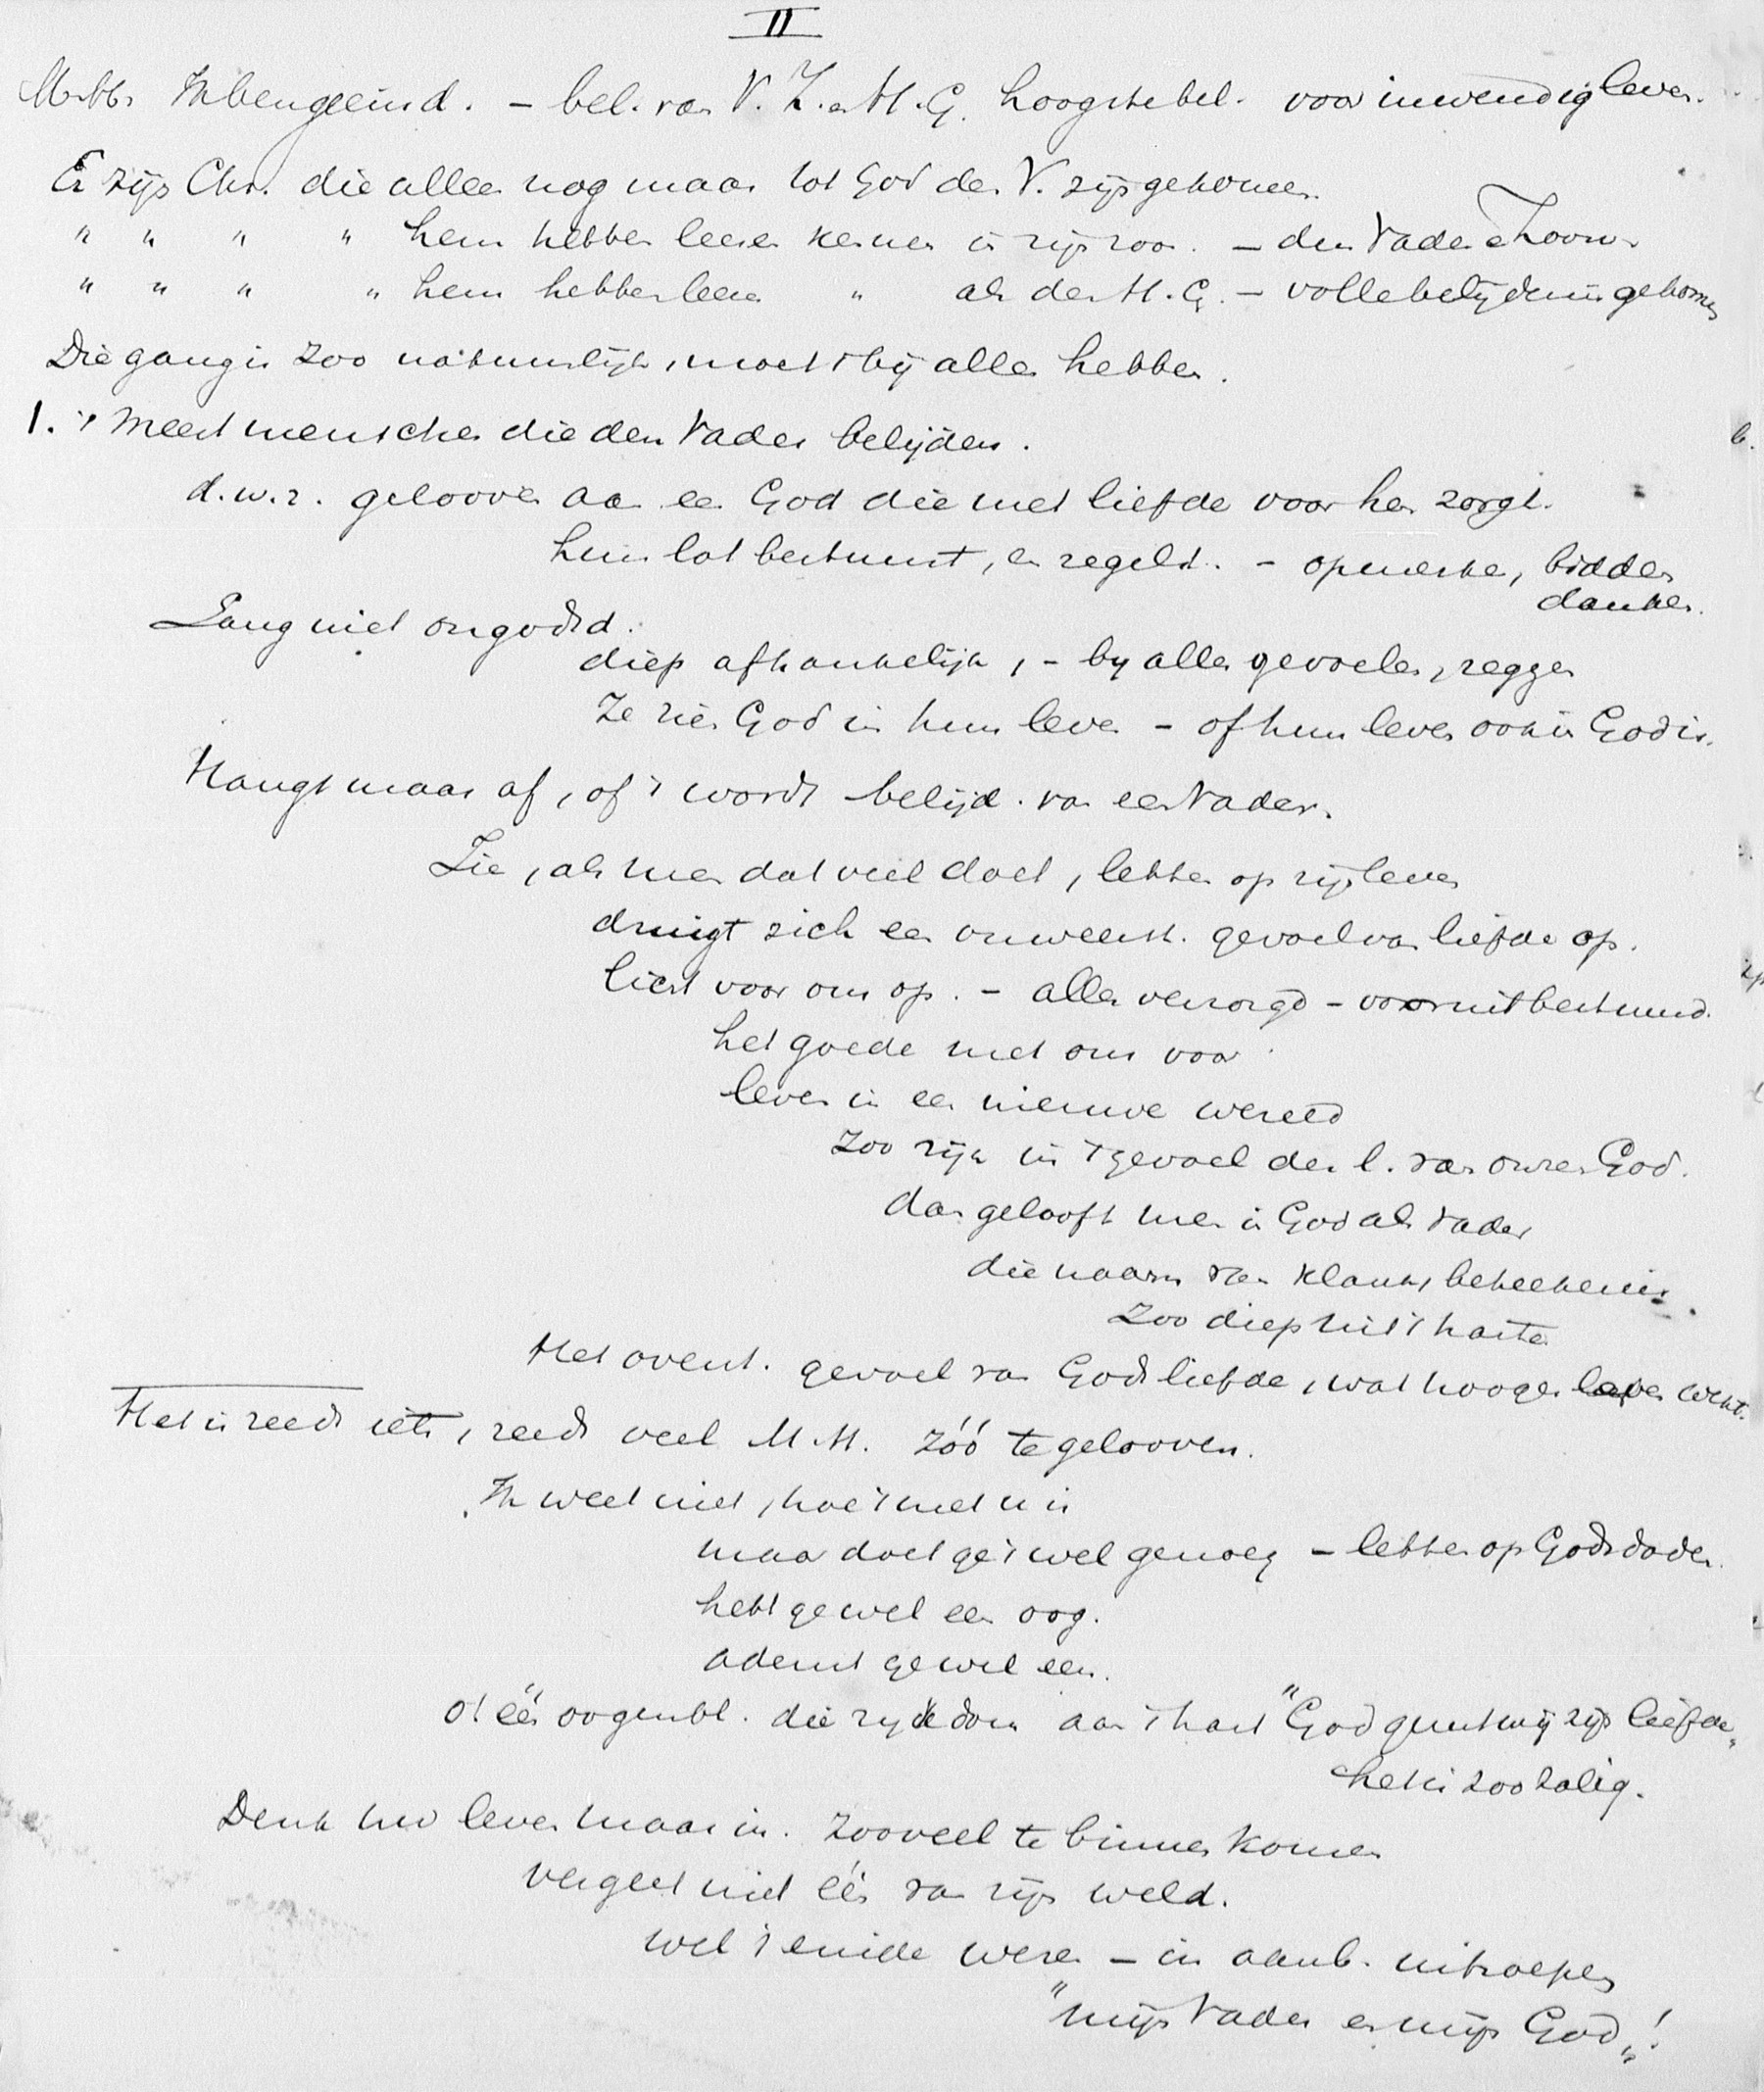 II
M. bb. Ik ben geeind. – bel. van V. Z. en H. G. hoogste bel. voor inwendig leven.
Er zijn Chr. die alleen nog maar tot God den V. zijn gekomen.
" " " " hem hebben leeren kennen in zijn zoon. – den Vader & Zoon
" " " " hem hebben leeren " als den H. G. – volle belijdenis gekomen
Die gang is zoo natuurlijk, moet 't bij allen hebben.
1. 't Meest menschen die den Vader belijden.
d.w.z. gelooven aan een God die met liefde voor hen zorgt.
hun lot bestuurt, en regelt. – opmerken, bidden
danken.
Lang niet ongodsd.
diep afhankelijk, – by alles gevoelen, zeggen
Ze zien God in hun leven – of hun leven ook in God is.
Hangt maar af, of 't wordt belijd. van een Vader.
Zie, als men dat veel doet, letten op zijn leven
dringt zich een onweerst. gevoel van liefde op.
liefst voor ons op. – alles verzorgd – vooruit bestuurd.
het goede met ons voor
leven in een nieuwe wereld
Zoo rijk in 't gevoel der l. van onzen God.
dan gelooft men in God als Vader
die naam van klank, beteekenis
Zoo diep uit 't harte
Het overst. gevoel van Gods liefde, wat hooger leven wekt.
Het is reeds iets, reeds veel M. H. zóó te gelooven.
Ik weet niet, hoe 't met u is
maar doet ge 't wel genoeg – letten op Gods daden.
hebt ge wel een oog.
ademt ge wel een.
O! één oogenbl. die rijkdom aan 't hart "God gunt mij zijn liefde"
het is zoo zalig.
Denk uw leven maar in. Zooveel te binnen komen
vergeet niet één van zijn weld.
wel 't einde wezen – in aanb. uitroepen
"mijn Vader en mijn God"!